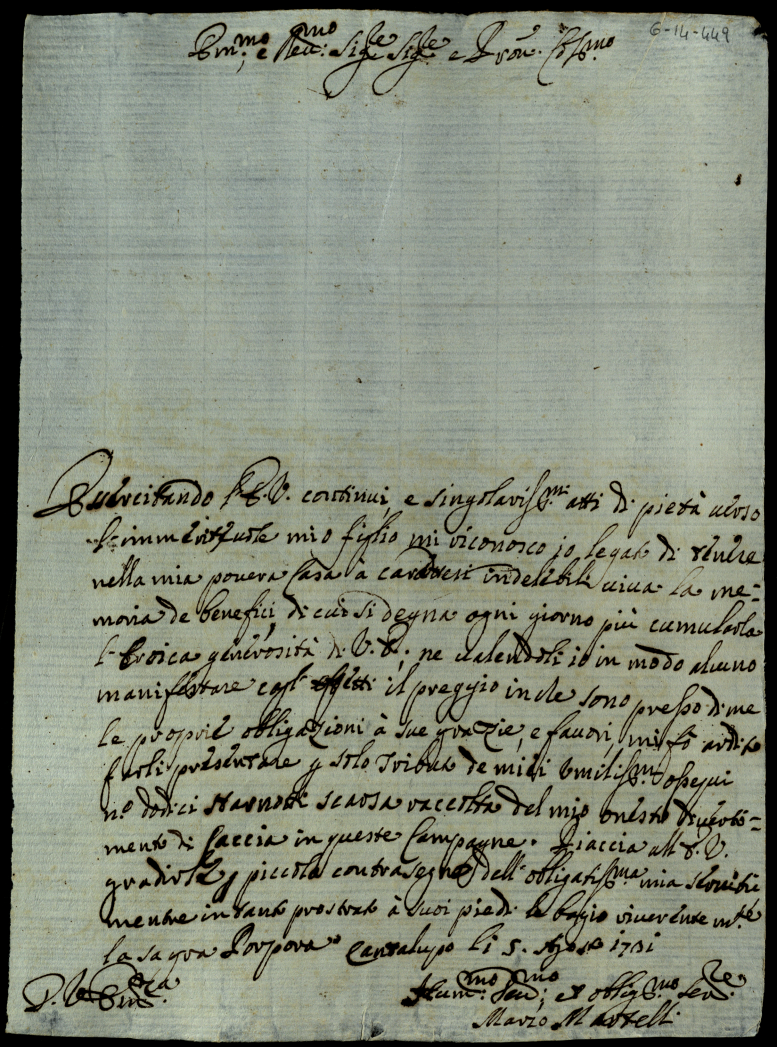 6-14-449
Em:mo e Reu:mo Sig:re Sig:re e Pron. Col:mo
Esercitando l'E.V. continui, e singolariss:mi atti di pietà uerso
l'immeriteuole mio figlio mi riconosco io legato di tenere
nella mia pouera Casa à caratteri indelebili uiua la me=
moria de benefici, di cui si degna ogni giorno più cumularla
l'Eroica generosità di V.E.; ne ualendoli io in modo alcuno
manifestare cogl'effetti il preggio in che sono presso di me
le proprie obligazioni à sue grazie, e fauori, mi fò ardito
farli presentare p solo Tributo de miei umiliss:mi ossequi
n.o dodici starnotti scarsa raccolta del mio onesto diuerti=
mento di Caccia in queste Campagne. Piaccia all'E.V.
gradirli p piccolo contrasegno dell'obligatiss:ma mia seruitù
mentre in tanto prostrato à suoi piedi le bagio riuerentem:te
la sagra Porpora. Cantalupo li 5. Agosto 1731
D. V. Em:za
Hum:mo Deu:mo, et oblig:mo Ser:re
Mario Martelli